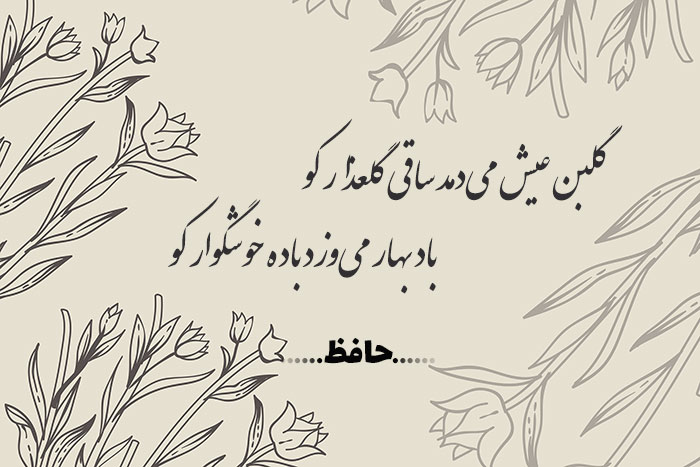 گلبن عیش می‌دمد ساقی گلعذار کو
باد بهار می‌وزد باده خوشگوار کو
......حافظ......